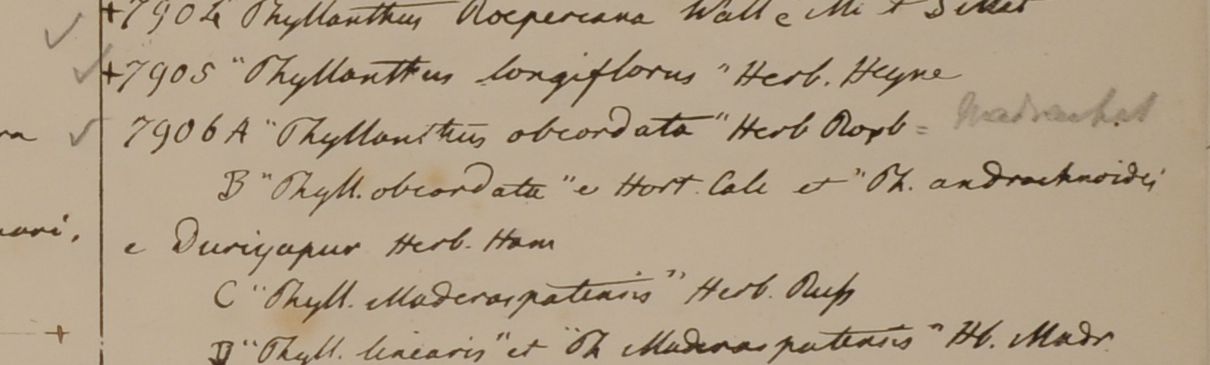 +7904 Phyllanthus Roeperiana Wall e M. et Sillet
+7905 "Phyllanthus longiflorus" Herb. Heyne
7906 A "Phyllanthus obcordata" Herb Roxb =
B "Phyll. obcordata" e Hort. Calc et "Ph. andrachnoides
e Duriyapur Herb. Ham
C "Phyll. Maderaspatensis" Herb. Russ
D "Phyll. linearis" et "Ph Maderaspatensis" Hb. Madr